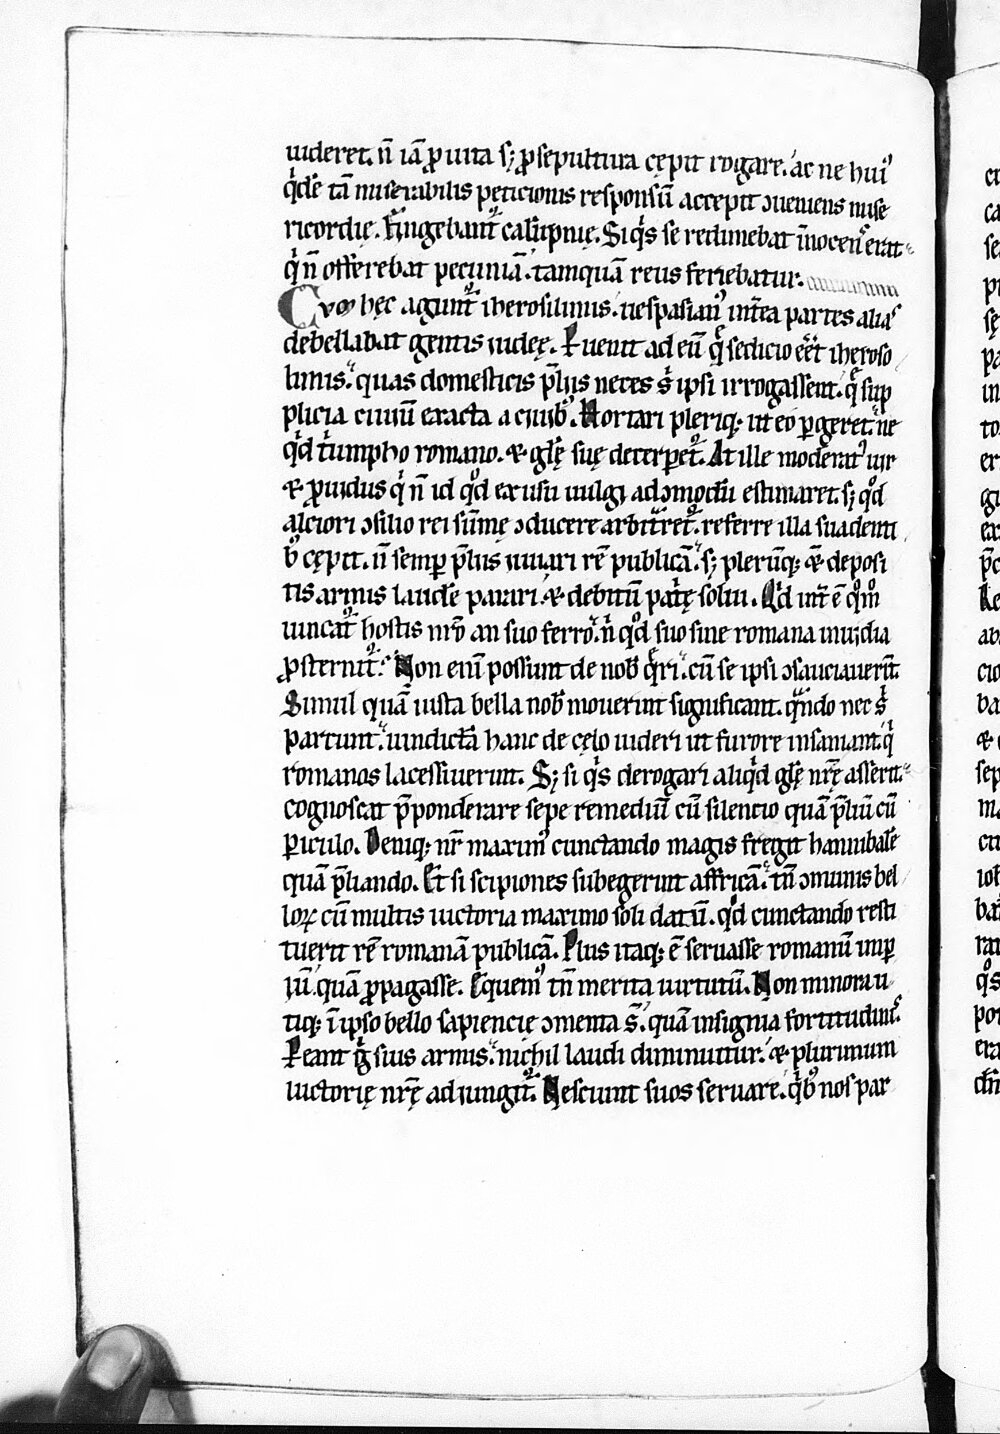 uideret. n̄ iā ꝓ uita sꝫ ꝓ sepultura cępit rogare. ac ne huiꝰ
qͥdē tā miserabilis peticionis responsū accepit ↄueniens mise
ricordię. Fingebant᷑ calūpnię. Si qͥs se redimebat īnocens erat
qͥ n̄ offerebat pecuniā. tamquā reus feriebatur.
Cvm hęc agunt᷑ iherosolimis. uespasianꝰ int̄ea partes alias
debellabat gentis iudeę. Fuerit ad eū qͣ sedicio eēt iheroso
limis. quas domesticis p̄liis neces sͥ ipsi irrogassent. qͣ sup
plicia ciuiū exacta a ciuibꝰ. Hortari pleriqꝫ ut eo ꝑgeret. ne
qͥd tͥumpho romano. ⁊ glę̄ suę decerꝑet᷑. At ille moderatꝰ uir
⁊ ꝓuidus qͥ n̄ id qͦd ex usu uulgi ad ↄmodū estimaret. sꝫ qͦd
alciori ↄsilio rei sūmę ↄducere arbitͣret᷑. referre illa suadenti
bꝰ cępit. n̄ semꝑ p̄lus iuuari rē publicā. sꝫ plerūqꝫ ⁊ deposi
tis armis laudē parari. ⁊ debitū patͥę solui. Qͥd int̄ ē qͦmͦ
uincat᷑ hostis nr̄o an suo ferro. n̄ qͦd suo sine romana inuidia
ꝓsternit᷑. Non enī possunt de nob̄ qͣri. cū se ipsi ↄsauciauerīt.
Simul quā iusta bella nob̄ mouerint significant. qͣndo nec sͥ
parcunt. uindictā hanc de cęlo uideri ut furore insaniant. qͥ
romanos lacessiuerunt. Sꝫ si qͥs derogari aliqͥd glę̄ nr̄ę asserit.
cognoscat p̄ponderare sepe remediū cū silencio quā p̄liū cū
ꝑiculo. Deniqꝫ nr̄ maximꝰ cunctando magis fregit hannibalē
quā p̄liando. Et si scipiones subegerunt affricā. tn̄ ↄmunis bel
loꝝ cū multis uictoria maximo soli datū. qͦd cunctando resti
tuerit rē romanā publicā. Plus itaqꝫ ē seruasse romanū imꝑ
iū. quā ꝓpagasse. Equenꝰ tn̄ merita uirtutū. Non minora u
tiqꝫ ī ipso bello sapiencię ↄmenta s̄. quā insignia fortitudinis.
Peant gͥ suis armis. nichil laudi diminuitur. ⁊ plurimum
uictorię nr̄ę adiungit᷑. Nesciunt suos seruare. qͥbꝰ nos par